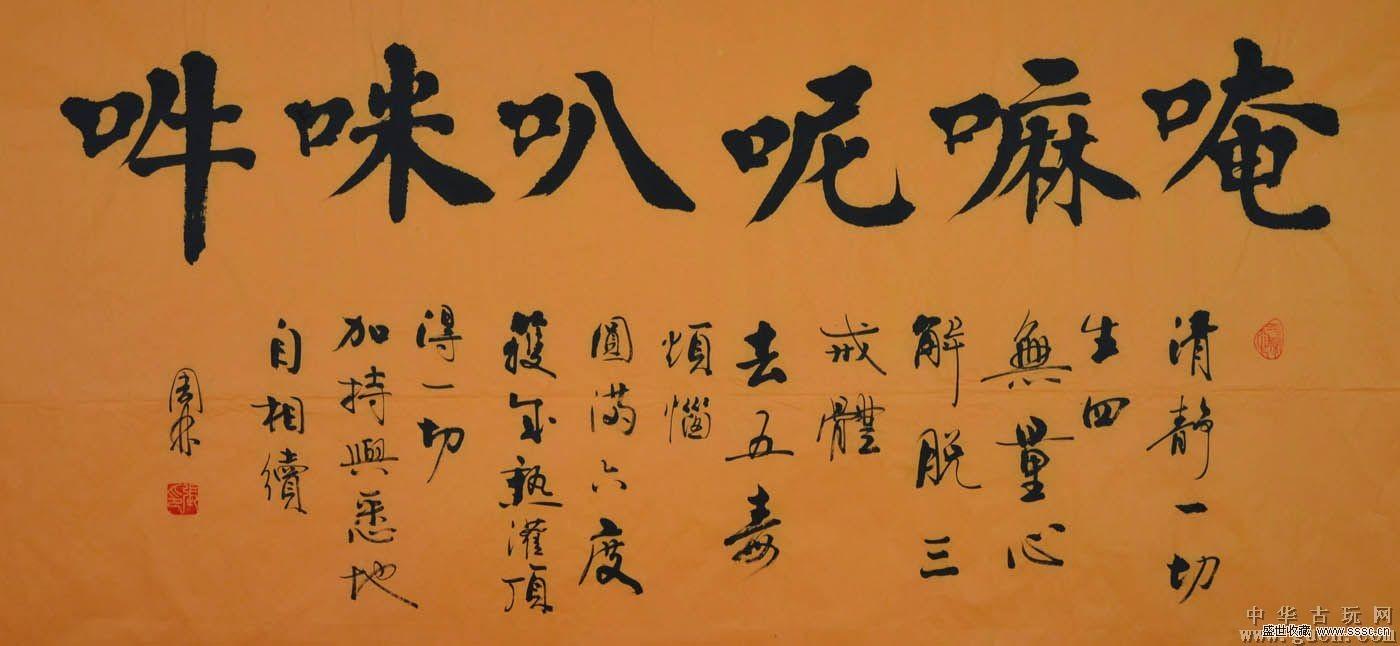 唵嘛呢叭咪吽
清靜一切
生四
無量心
解脱三
戒體
去五毒
煩惱
圓滿六度
獲成熟灌頂
得一切
加持與悉地
自相續
中华古玩网
盛世收藏 www.sssc.cn